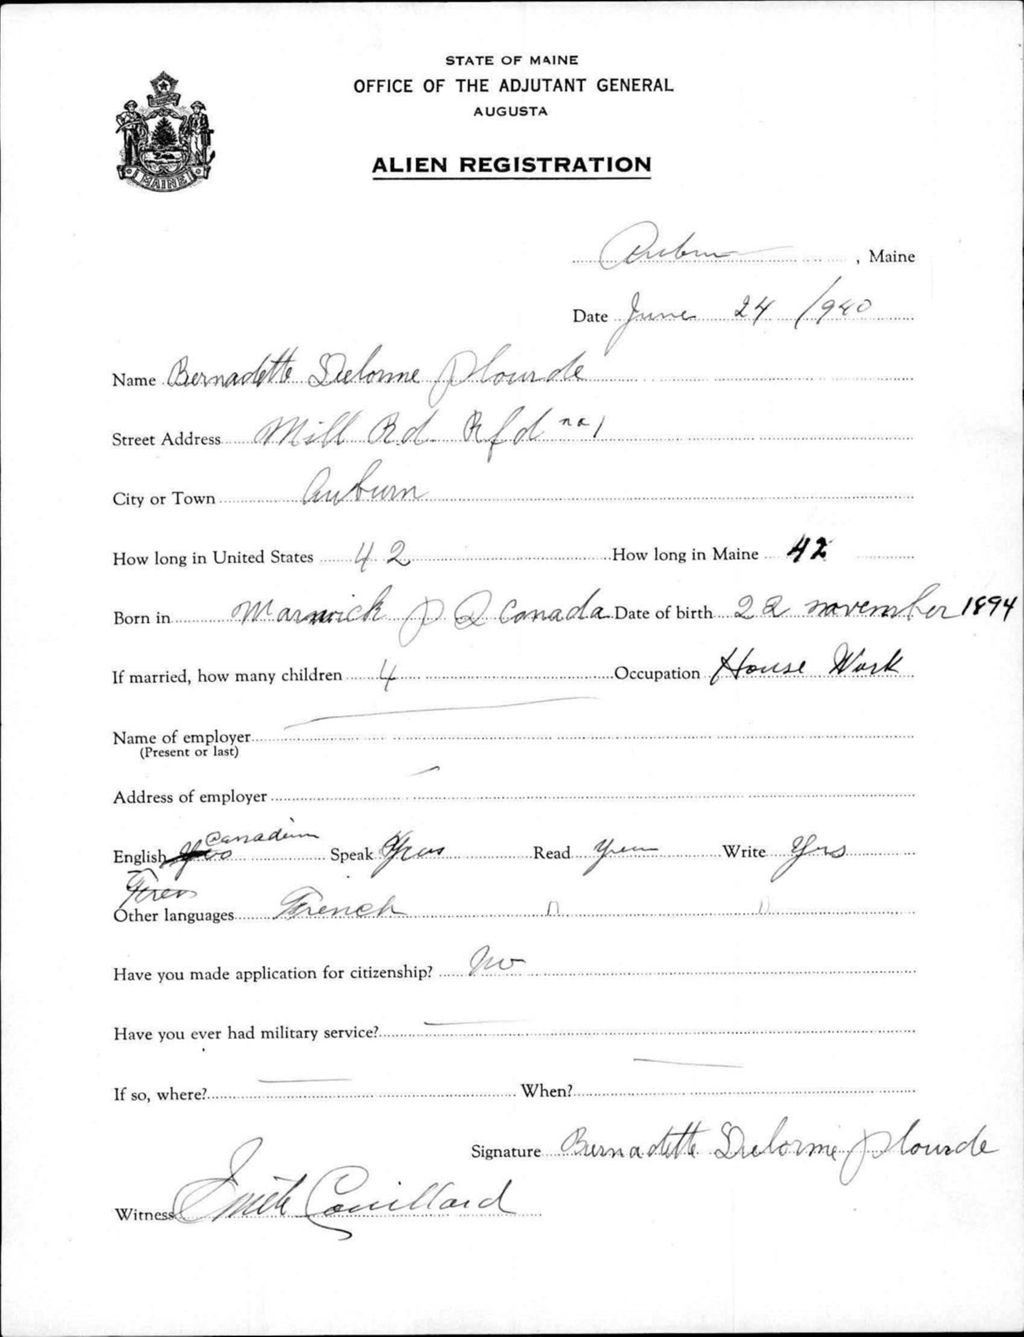 STATE OF MAINE
OFFICE OF THE ADJUTANT GENERAL
AUGUSTA
MAINE
ALIEN REGISTRATION
Auburn, Maine
Date June 24 1940
Name Bernadette Delorme Plourde
Street Address Mill Rd. Rfd no 1
City or Town Auburn
How long in United States 42 How long in Maine 42
Born in Warwick P Q Canada Date of birth 22 november 1894
If married, how many children 4 Occupation House Work
Name of employer
(Present or last)
Address of employer
Canadian
English Speak Yes Read Yes Write Yes
Other languages French " "
Have you made application for citizenship? No
Have you ever had military service?
If so, where? When?
Signature Bernadette Delorme Plourde
Witness Couillard